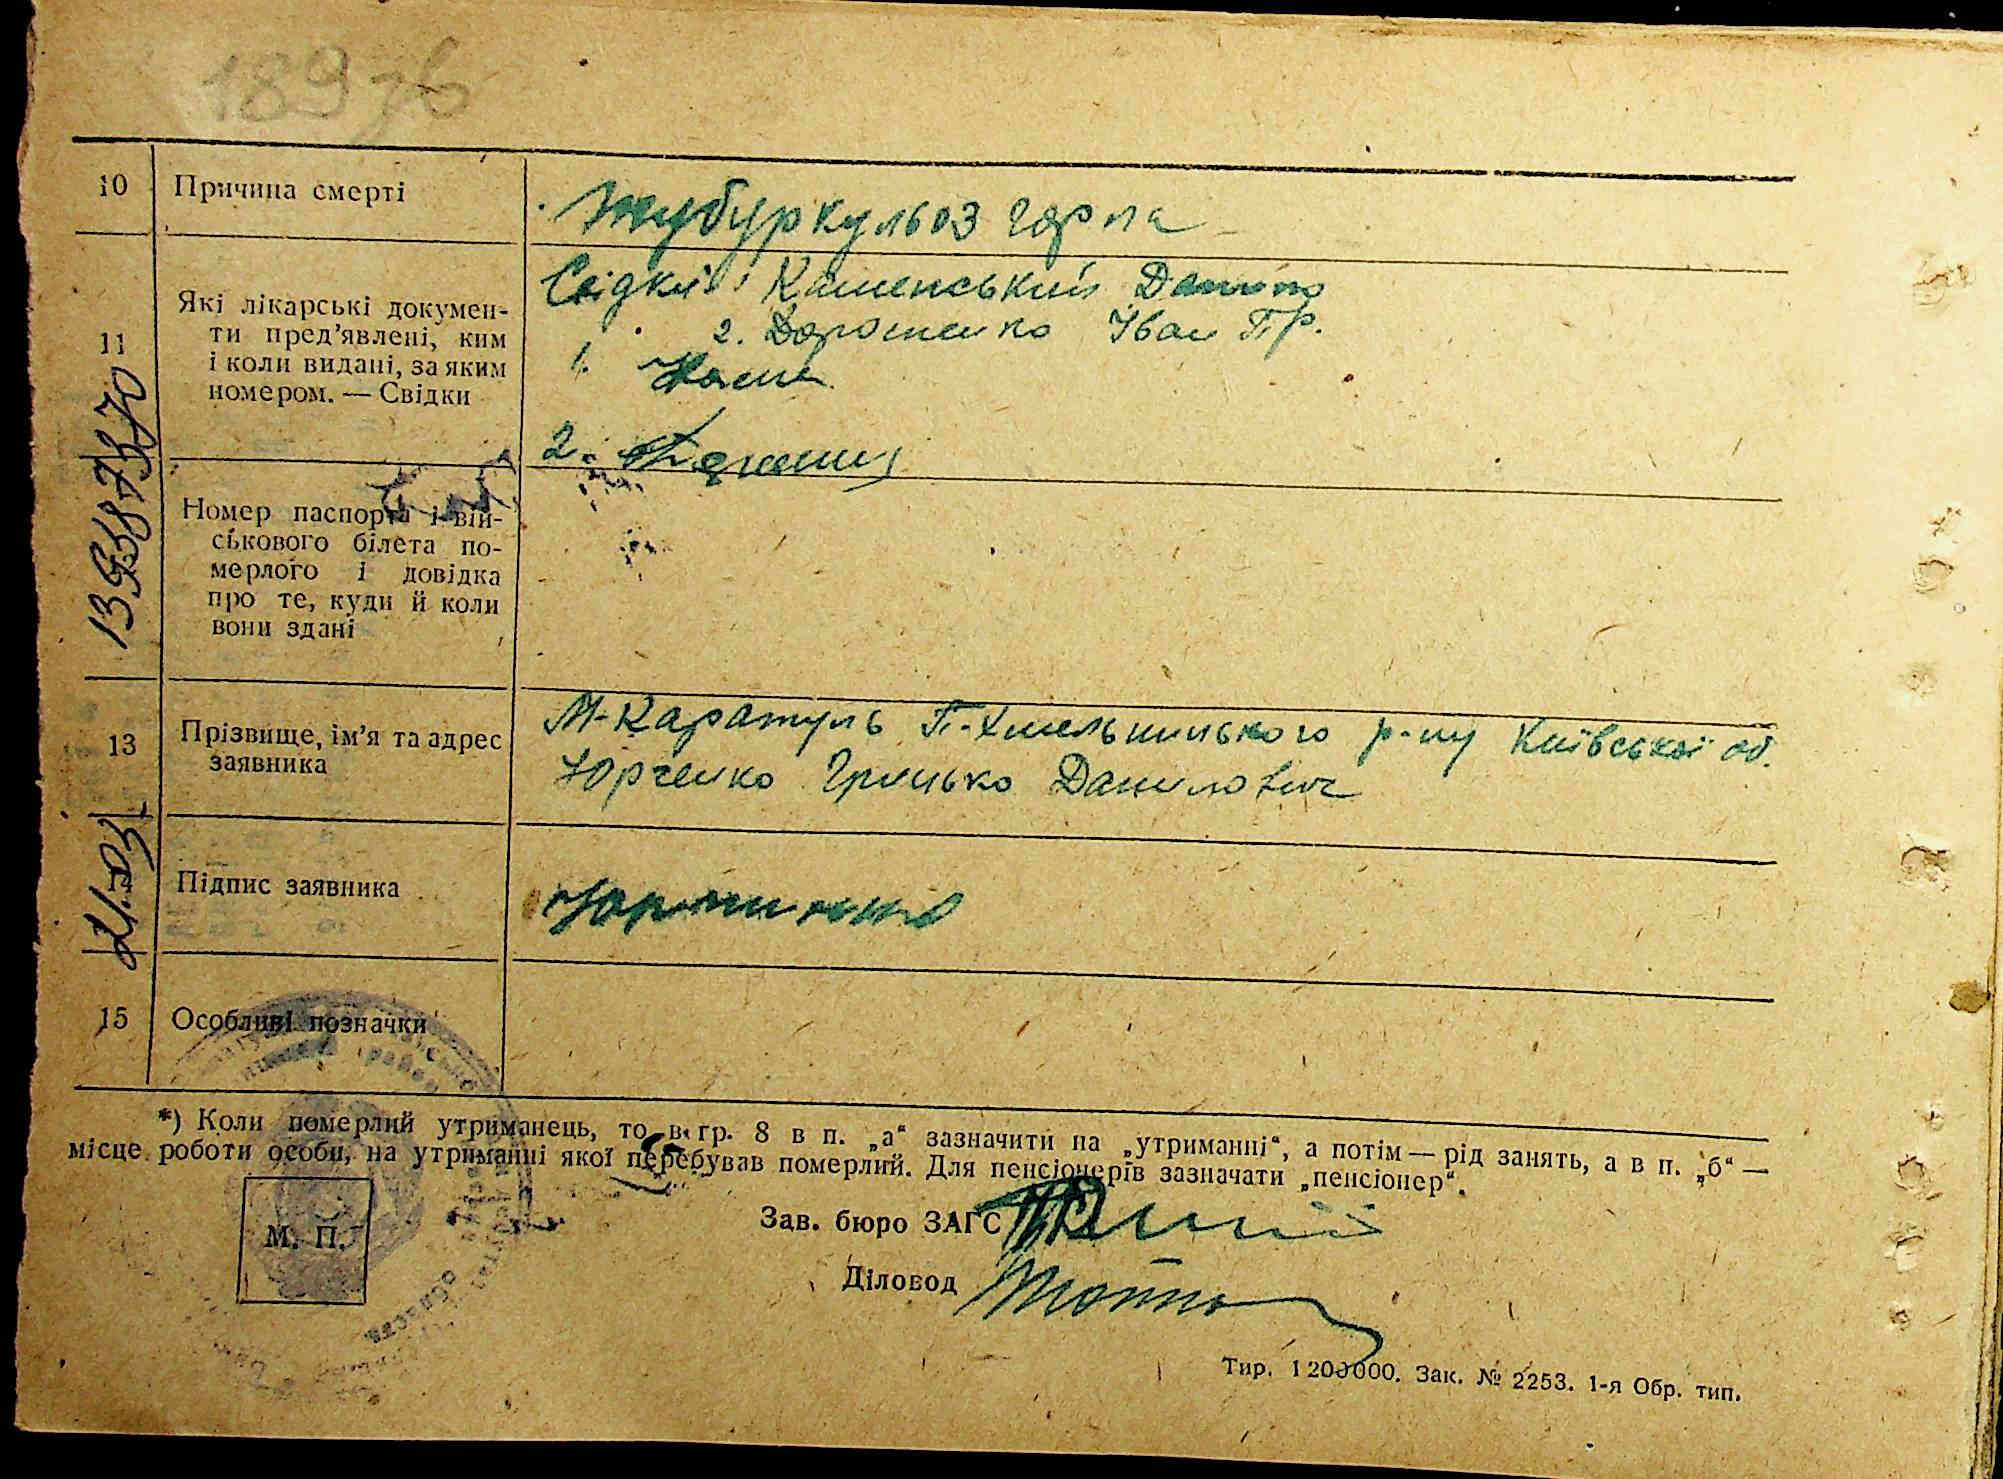 189 зв
10 Причина смерті
Тубуркульоз горла
11 Які лікарські докумен-
ти пред’явлені, ким
і коли видані, за яким
номером. — Свідки
Свідки: Каменський Данило
2. Дорошенко Іван Гр.
1. Каме
2.
Номер паспорта і вій-
ськового білета по-
мерлого і довідка
про те, куди й коли
вони здані
13 Прізвище, ім’я та адрес
заявника
М-Каратуль П-Хмельницького р-ну Київської об.
Юрченко Грицько Данилович
Підпис заявника
15 Особливі позначки
*) Коли померлий утриманець, то в гр. 8 в п. „а“ зазначити на „утриманні“, а потім — рід занять, а в п. „б“ —
місце роботи особи, на утриманні якої перебував померлий. Для пенсіонерів зазначати „пенсіонер“.
М. П.
Зав. бюро ЗАГС
Діловод
Тир. 1200000. Зак. № 2253. 1-я Обр. тип.